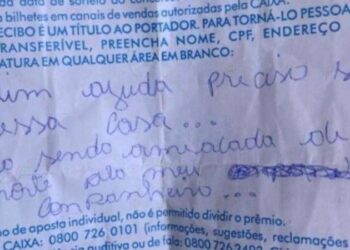 da data de sorteio do concurso
bilhetes em canais de vendas autorizadas pela CAIXA.
ECIBO É UM TÍTULO AO PORTADOR. PARA TORNÁ-LO PESSOA
TRANSFERÍVEL, PREENCHA NOME, CPF, ENDEREÇO
ATURA EM QUALQUER ÁREA EM BRANCO:
ajuda preciso s
essa casa...
sendo ameaçada de
morte pelo meu
companheiro...
o de aposta individual, não é permitido dividir o prêmio.
CAIXA: 0800 726 0101 (informações, sugestões, reclamações
auditiva ou de fala: 0800 726 2492